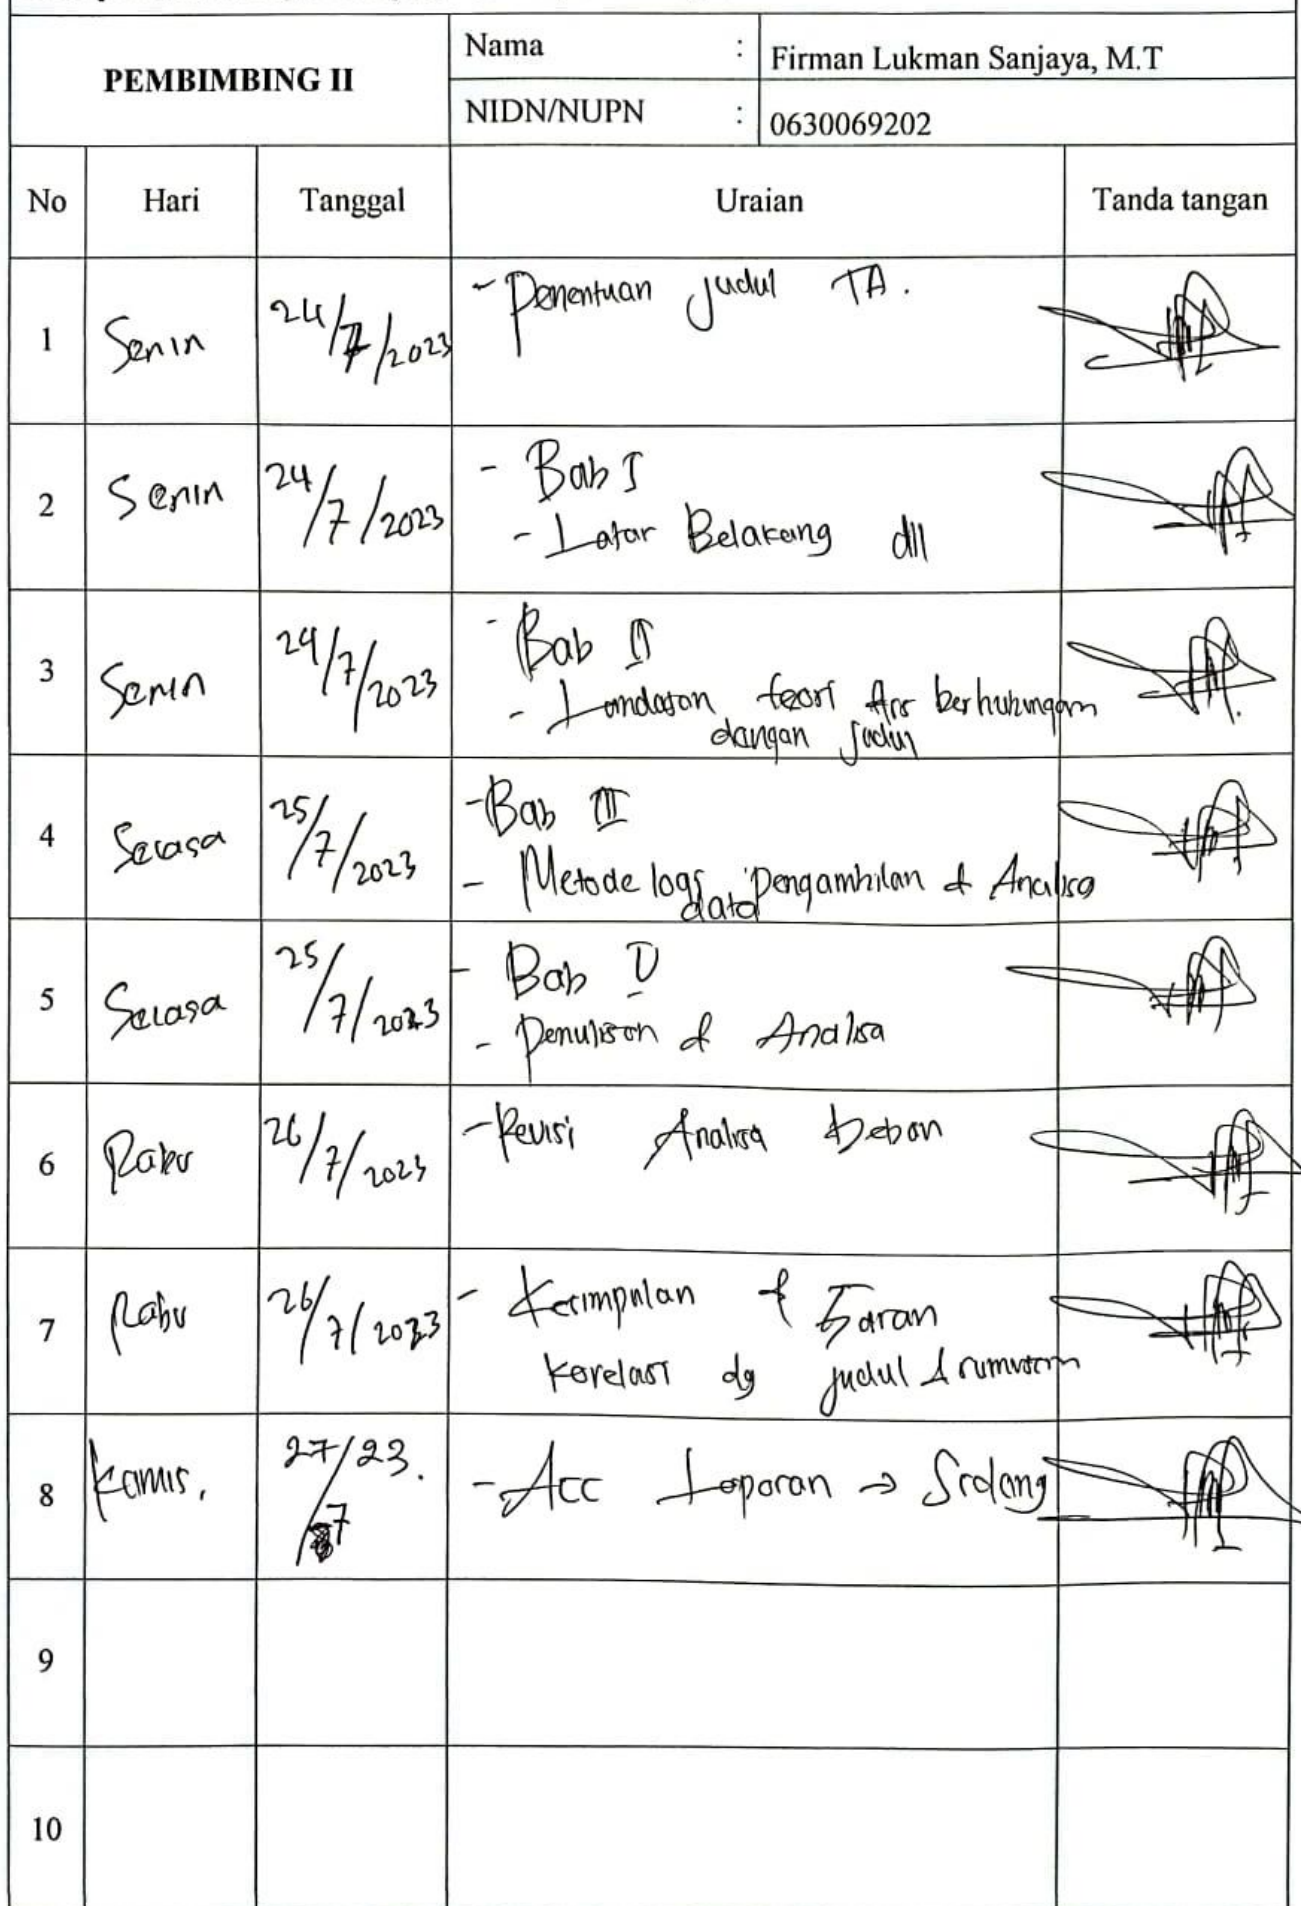 PEMBIMBING II
Nama : Firman Lukman Sanjaya, M.T
NIDN/NUPN : 0630069202
No Hari Tanggal Uraian Tanda tangan
1 Senin 24/7/2023 - Penentuan judul TA.
2 Senin 24/7/2023 - Bab I
- Latar Belakang dll
3 Senin 24/7/2023 - Bab II
- Landasan teori berhubungan
dengan judul
4 Selasa 25/7/2023 - Bab III
- Metodelogi pengambilan & Analisa
data
5 Selasa 25/7/2023 - Bab
- Penulisan & Analisa
6 Rabu 26/7/2023 - Revisi Analisa beban
7 Rabu 26/7/2023 - Kesimpulan & Saran
korelasi dg judul & rumusan
8 Kamis. 27/23.
/7 - Acc Laporan → Sidang
9
10